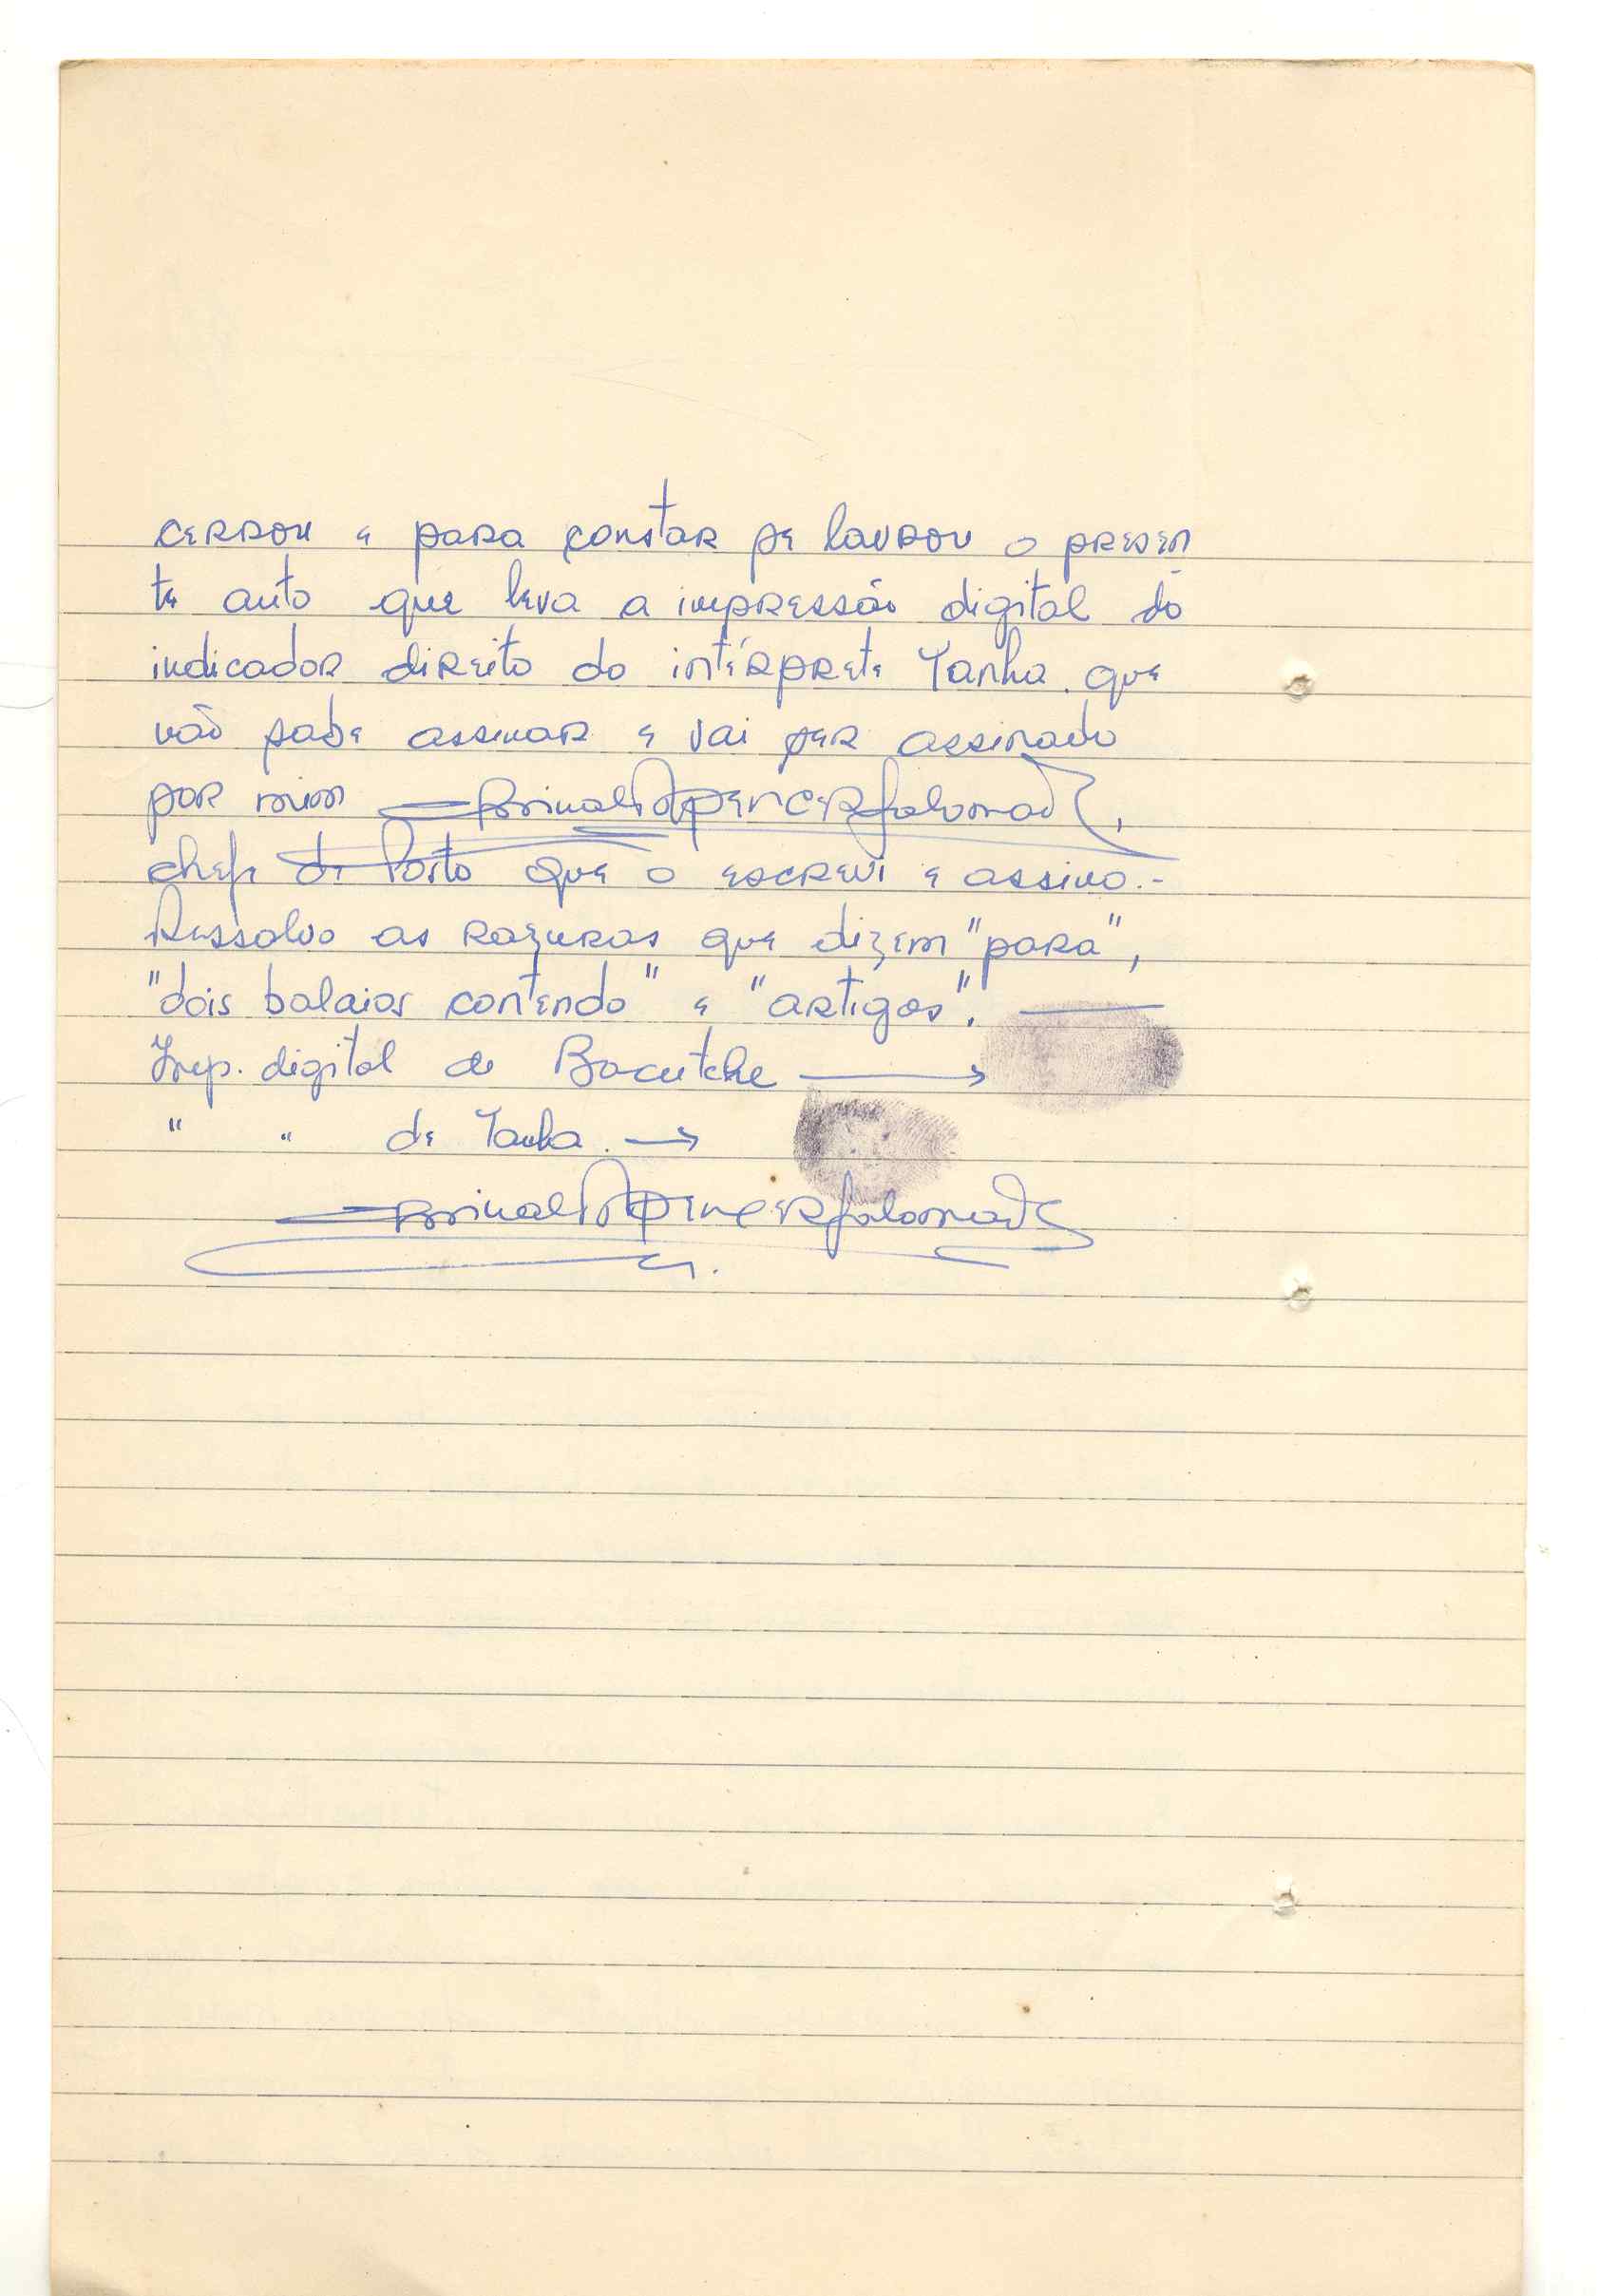 cerrou e para constar se lavrou o presen
te auto que leva a impressão digital do
indicador direito do intérprete Tanha que
não sabe assinar e vai ser assinado
por mim
chefe de Posto que o escrevi e assino.-
Ressalvo as razuras que dizem "para",
"dois balaios contendo" e "artigos". —
Imp. digital de Bacutche →
" " de Tanha. →